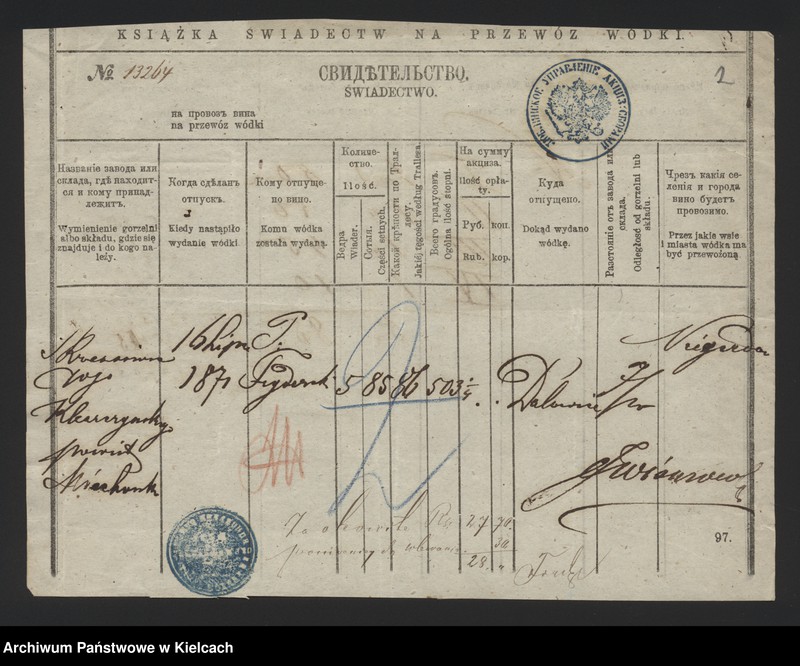 KSIĄŻKA ŚWIADECTW NA PRZEWÓZ WÓDKI.
№ 13264
СВИДѢТЕЛЬСТВО.
2
ŚWIADECTWO.
на провозъ вина
na przewóz wódki
УПРАВЛЕНІЕ АКЦИЗ. СБОРАМИ
Названіе завода или
склада, гдѣ находит-
ся и кому принад-
лежитъ.
Wymienienie gorzelni
albo składu, gdzie się
znajduje i do kogo na-
leży.
Когда сдѣланъ
отпускъ.
Kiedy nastąpiło
wydanie wódki.
Кому отпуще-
но вино.
Komu wódka
została wydaną.
Количе-
ство.
Ilość.
Ведра
Wiader.
Сотыя.
Części setnych.
Какой крѣпости по Трал-
лесу.
Jakiéj tęgości według Trallesa.
Всего градусовъ.
Ogólna ilość stopni.
На сумму
акциза.
Ilość opła-
ty.
Руб.
коп.
Rub.
kop.
Куда
отпущено.
Dokąd wydano
wódkę.
Разстояніе отъ завода или
склада.
Odległość od gorzelni lub
składu.
Чрезъ какія се-
ленія и города
вино будетъ
провозимо.
Przez jakie wsie
i miasta wódka ma
być przewożoną.
16 Lipn
1871
P.
5
85
86
503 1/4
7/w
powiat
Miechowsk
Za okowitę Rs 27 70.
30
28. "
97.
Archiwum Państwowe w Kielcach